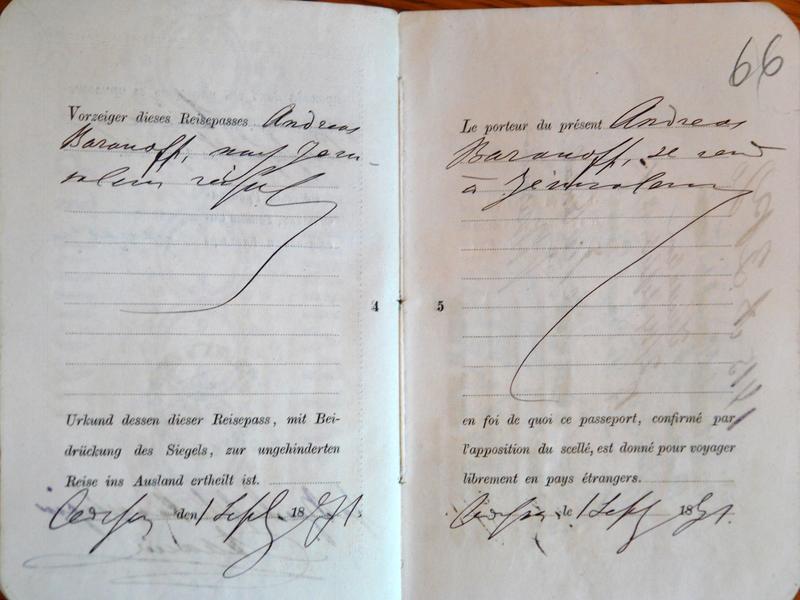 Vorzeiger dieses Reisepasses Andreas
Baranoff, nach Jeru-
salem
4
Urkund dessen dieser Reisepass, mit Bei-
drückung des Siegels, zur ungehinderten
Reise ins Ausland ertheilt ist.
den 1 Sept. 18
66
Le porteur du présent Andreas
Baranoff, se rend
à Jérusalem
5
en foi de quoi ce passeport, confirmé par
l'apposition du scellé, est donné pour voyager
librement en pays étrangers.
le 1 Sept 18